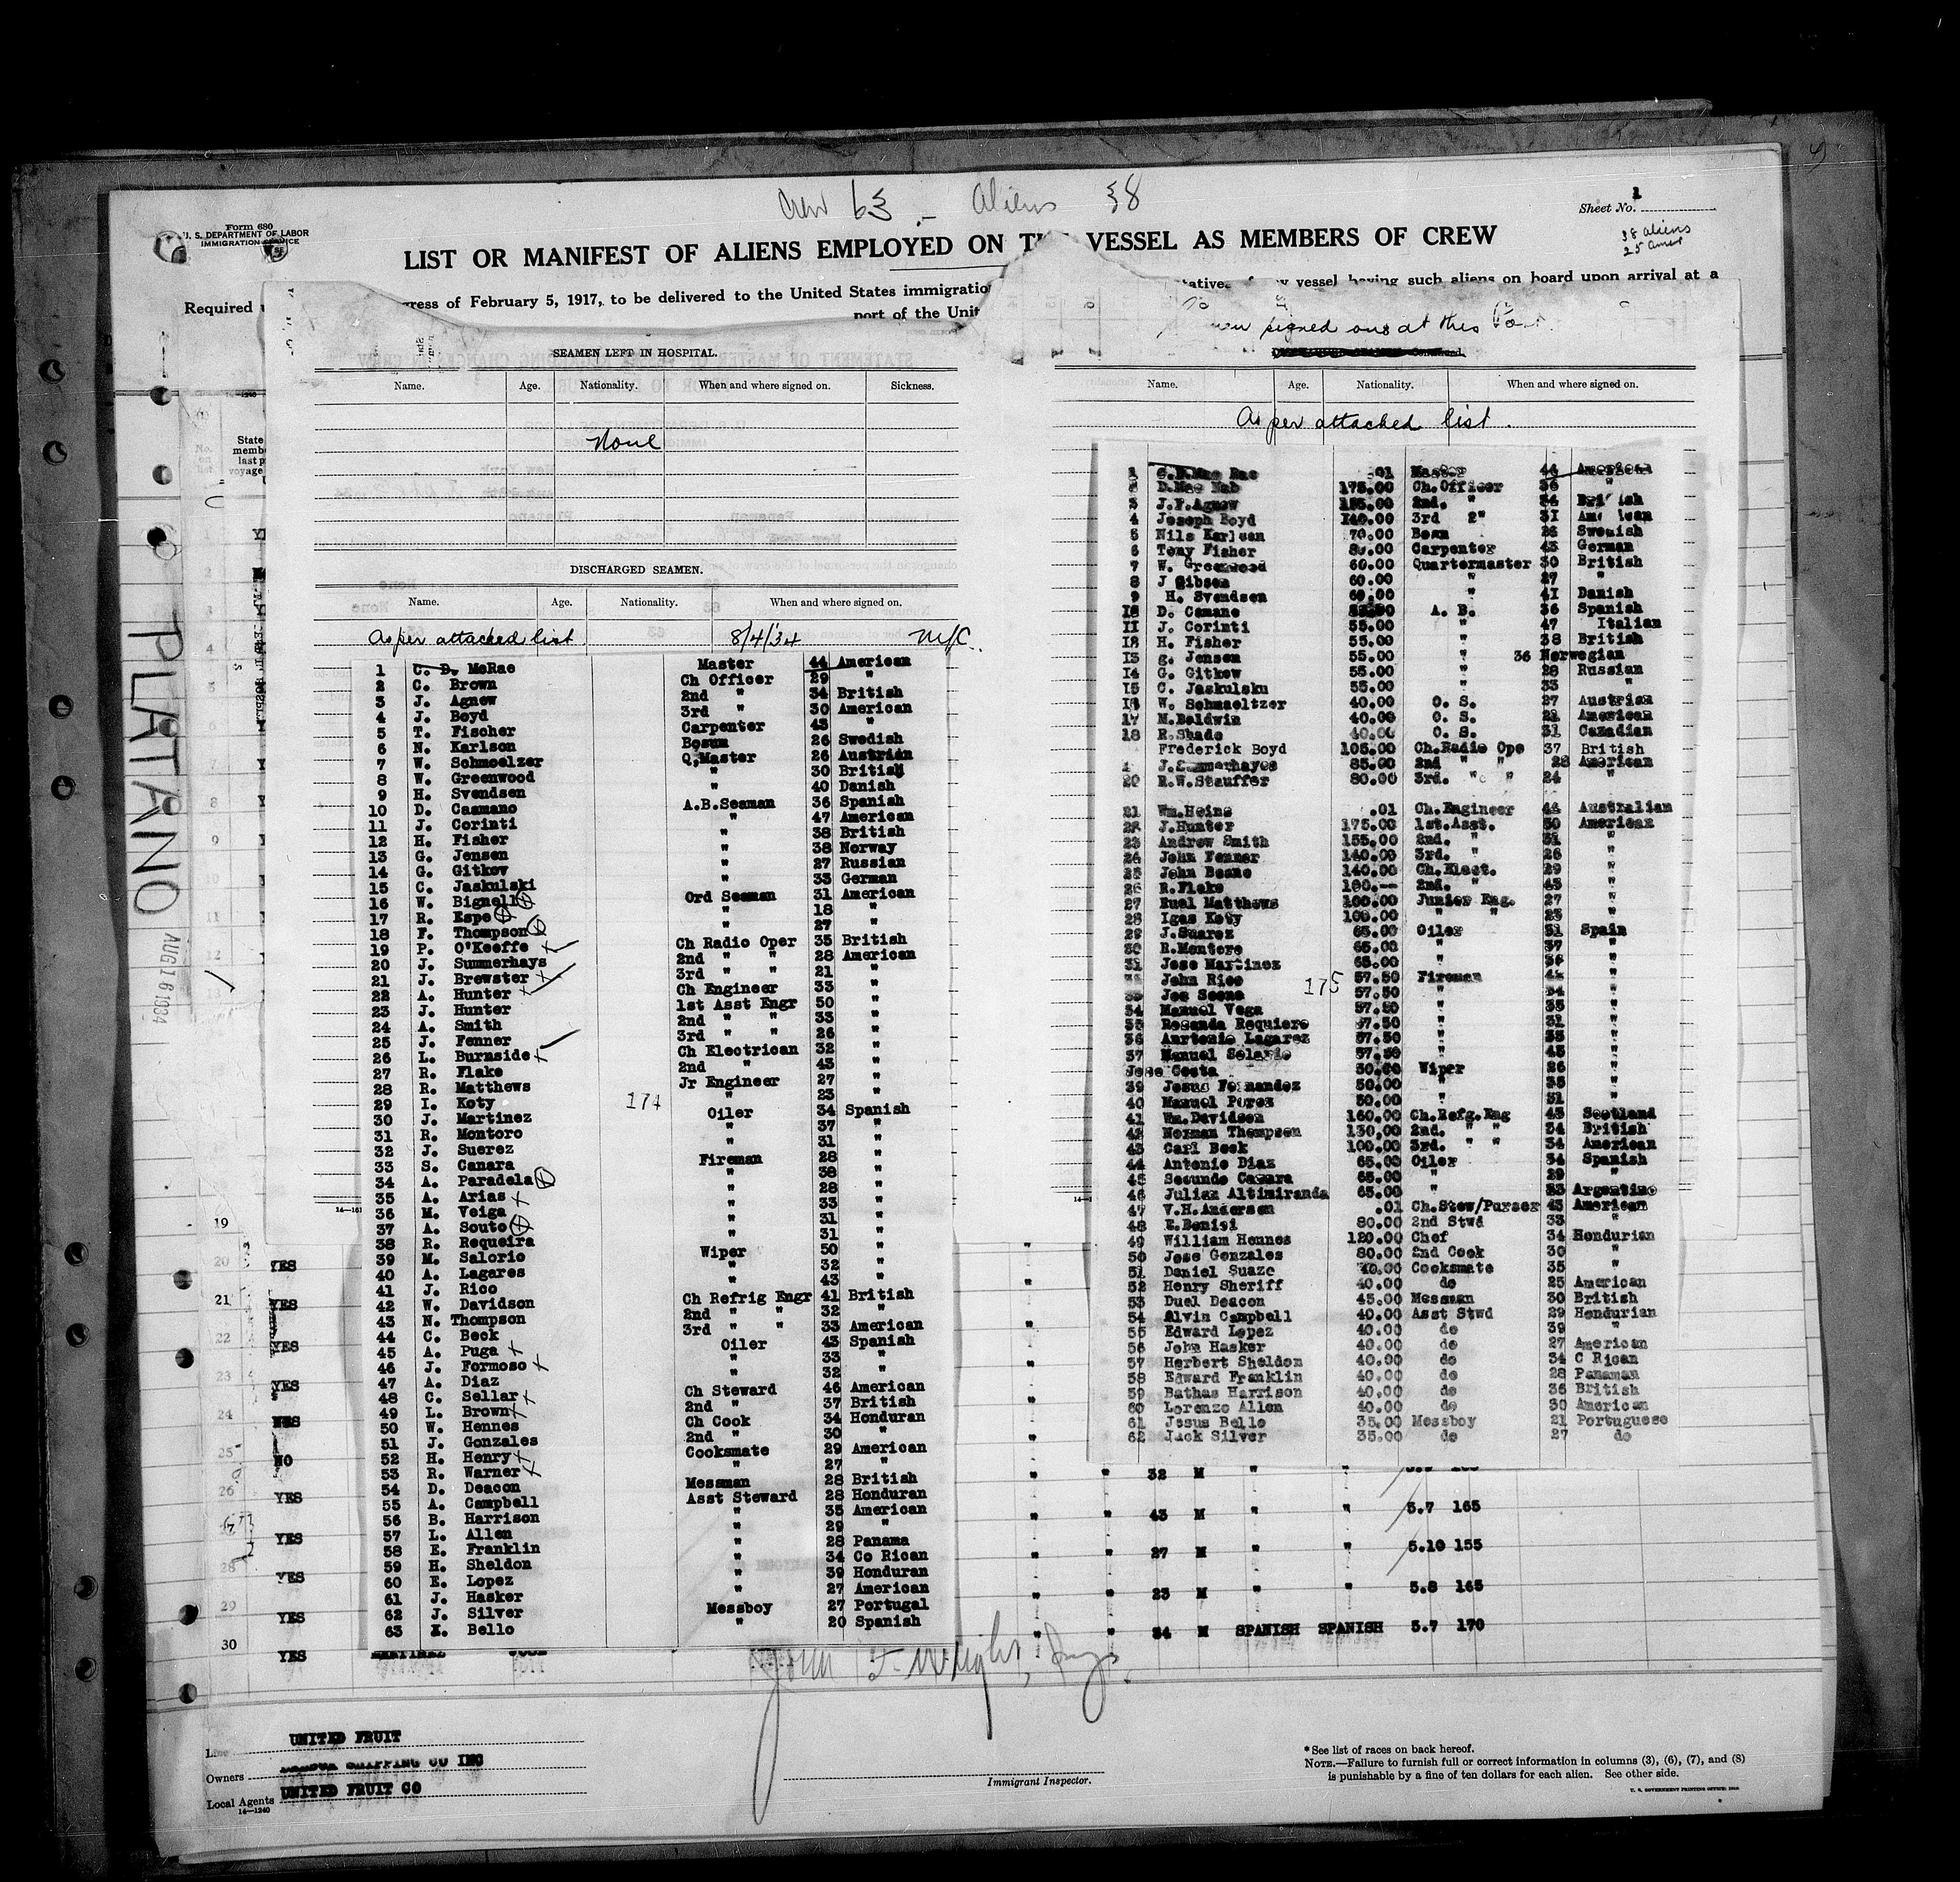 Crew 63 - Aliens 38
Sheet No. 1
Form 680
U. S. DEPARTMENT OF LABOR
IMMIGRATION SERVICE
38 aliens
25 Amer
LIST OR MANIFEST OF ALIENS EMPLOYED ON THE VESSEL AS MEMBERS OF CREW
Required
gress of February 5, 1917, to be delivered to the United States immigration
vessel having such aliens on board upon arrival at a
port of the Unit
PLATANO
AUG 16 1934
SEAMEN LEFT IN HOSPITAL.
Name. Age. Nationality. When and where signed on. Sickness.
None
DISCHARGED SEAMEN.
Name. Age. Nationality. When and where signed on.
As per attached list 8/4/34
1 C. D. McRae Master 44 American
2 C. Brown Ch Officer 29 "
3 J. Agnew 2nd " 34 British
4 J. Boyd 3rd " 30 American
5 T. Fischer Carpenter 43 "
6 N. Karlson Bosun 26 Swedish
7 W. Schmoelzer Q.Master 26 Austrian
8 W. Greenwood " 30 British
9 H. Svendsen " 40 Danish
10 D. Casmano A.B.Seaman 36 Spanish
11 J. Corinti " 47 American
12 H. Fisher " 38 British
13 G. Jensen " 38 Norway
14 G. Gitkov " 27 Russian
15 C. Jaskulski " 33 German
16 W. Bignell Ord Seaman 31 American
17 R. Espe " 18 "
18 F. Thompson " 27 "
19 P. O'Keeffe Ch Radio Oper 35 British
20 J. Summerhays 2nd " " 28 American
21 J. Brewster 3rd " " 21 "
22 A. Hunter Ch Engineer 33 "
23 J. Hunter 1st Asst Engr 50 "
24 A. Smith 2nd " " 33 "
25 J. Fenner 3rd " " 26 "
26 L. Burnside Ch Electrican 32 "
27 R. Flake 2nd " 43 "
28 R. Matthews Jr Engineer 27 "
29 I. Koty " 23 "
174
30 J. Martinez Oiler 34 Spanish
31 R. Montoro " 37 "
32 J. Suerez " 31 "
33 S. Canara Fireman 28 "
34 A. Paradela " 38 "
35 A. Arias " 28 "
36 M. Veiga " 33 "
37 A. Souto " 31 "
38 R. Requeira " 31 "
39 M. Salorio Wiper 50 "
40 A. Lagares " 32 "
41 J. Rico " 43 "
42 W. Davidson Ch Refrig Engr 41 British
43 N. Thompson 2nd " " 32 "
44 C. Beck 3rd " " 33 American
45 A. Puga Oiler 43 Spanish
46 J. Formoso " 33 "
47 A. Diaz " 32 "
48 C. Sellar Ch Steward 46 American
49 L. Brown 2nd " 37 British
50 W. Hennes Ch Cook 34 Honduran
51 J. Gonzales 2nd " 30 "
52 H. Henry Cooksmate 29 American
53 R. Warner " 27 "
54 D. Deacon Messman 28 British
55 A. Campbell Asst Steward 28 Honduran
56 B. Harrison " 35 American
57 L. Allen " 29 "
58 E. Franklin " 28 Panama
59 H. Sheldon " 34 Co Rican
60 E. Lopez " 39 Honduran
61 J. Hasker " 27 American
62 J. Silver Messboy 27 Portugal
63 Bello " 20 Spanish
signed on at this
Name. Age. Nationality. When and where signed on.
As per attached list.
1 C.D.Mac Rae .01 Master 44 American
2 D.Mac Nab 175.00 Ch.Officer 36 "
3 J.F.Agnew 155.00 2nd. " 34 British
4 Joseph Boyd 140.00 3rd " 31 American
5 Nils Karlsen 70.00 Bosn 26 Swedish
6 Tony Fisher 80.00 Carpenter 43 German
7 W. Greenwood 60.00 Quartermaster 30 British
8 J Gibson 60.00 " 27 "
9 H. Svendsen 60.00 " 41 Danish
10 D. Camano A. B. 36 Spanish
11 J. Corinti 55.00 " 47 Italian
12 H. Fisher 55.00 " 38 British
13 g. Jensen 55.00 " 36 Norwegian
14 G. Gitkow 55.00 " 28 Russian
15 C. Jaskulsku 55.00 " 33 "
16 W. Schmaeltzer 40.00 O. S. 27 Austrian
17 M.Baldwin 40.00 O. S. 21 American
18 R.Shade 40.00 O. S. 31 Canadian
Frederick Boyd 105.00 Ch.Radio Ope 37 British
J.Summerhayes 85.00 2nd " " 28 American
20 R.W.Stauffer 80.00 3rd. " " 24 "
21 Wm.Heins .01 Ch.Engineer 44 Australian
22 J.Hunter 175.00 1st.Asst. 50 American
23 Andrew Smith 155.00 2nd. " 31 "
24 John Fenner 140.00 3rd. " 26 "
25 John Beane 140.00 Ch.Elect. 29 "
26 R.Flake 100.-- 2nd. " 43 "
27 Ruel Matthews 100.00 Junior Eng. 27 "
28 Igas Koty 100.00 " " 23 "
29 J.Suarez 65.00 Oiler 31 Spain
30 R.Montore 65.00 " 37 "
31 Jose Martinez 65.00 " "
John Rico 57.50 Fireman "
175
33 Jos Seone 57.50 " 34 "
34 Manuel Vega 57.50 " 35 "
35 Rosanda Requiero 57.50 " 31 "
36 Anrtonio Lagarez 57.50 " 35 "
37 Manuel Solario 57.50 " 43 "
Jose Costa Wiper 26 "
39 Jesus Fernandez 50.00 " 35 "
40 Manuel Perez 50.00 " 31 "
41 Wm.Davidson 160.00 Ch.Refg.Eng 43 Scotland
42 Norman Thompson 130.00 2nd. " " 34 British
43 Carl Beck 100.00 3rd. " " 34 American
44 Antonio Diaz 65.00 Oiler 34 Spanish
45 Secundo Camara 65.00 " 29 "
46 Julian Altimiranda 65.00 " 23 Argentine
47 V.H.Andersen .01 Ch.Stew/Purser 43 American
48 E.Benisi 80.00 2nd Stwd 33 "
49 William Hennes 120.00 Chef 34 Hondurian
50 Jose Gonzales 80.00 2nd Cook 30 "
51 Daniel Suazo 40.00 Cooksmate 35 "
52 Henry Sheriff 40.00 do 25 American
53 Duel Deacon 45.00 Messman 30 British
54 Alvin Campbell 40.00 Asst Stwd 29 Hondurian
55 Edward Lopez 40.00 do 39 "
56 John Hasker 40.00 do 27 American
57 Herbert Sheldon 40.00 do 34 C Rican
58 Edward Franklin 40.00 do 28 Panaman
59 Bathas Harrison 40.00 do 36 British
60 Lorenzo Allen 40.00 do 30 American
61 Jesus Bello 35.00 Messboy 21 Portuguese
62 Jack Silver 35.00 do 27 do
19
20 YES
21 YES
22 YES
23 YES
24
25 NO " " 32 M " "
26 YES " " 43 M " " 5.7 165
YES " " 27 M " " 5.10 155
28 YES " " 23 M " " 5.8 165
29 YES " " 34 M SPANISH SPANISH 5.7 170
30 YES
Line UNITED FRUIT
Owners SHIPPING CO INC
Local Agents UNITED FRUIT CO
14—1240
Immigrant Inspector.
* See list of races on back hereof.
NOTE.—Failure to furnish full or correct information in columns (3), (6), (7), and (8)
is punishable by a fine of ten dollars for each alien. See other side.
U. S. GOVERNMENT PRINTING OFFICE